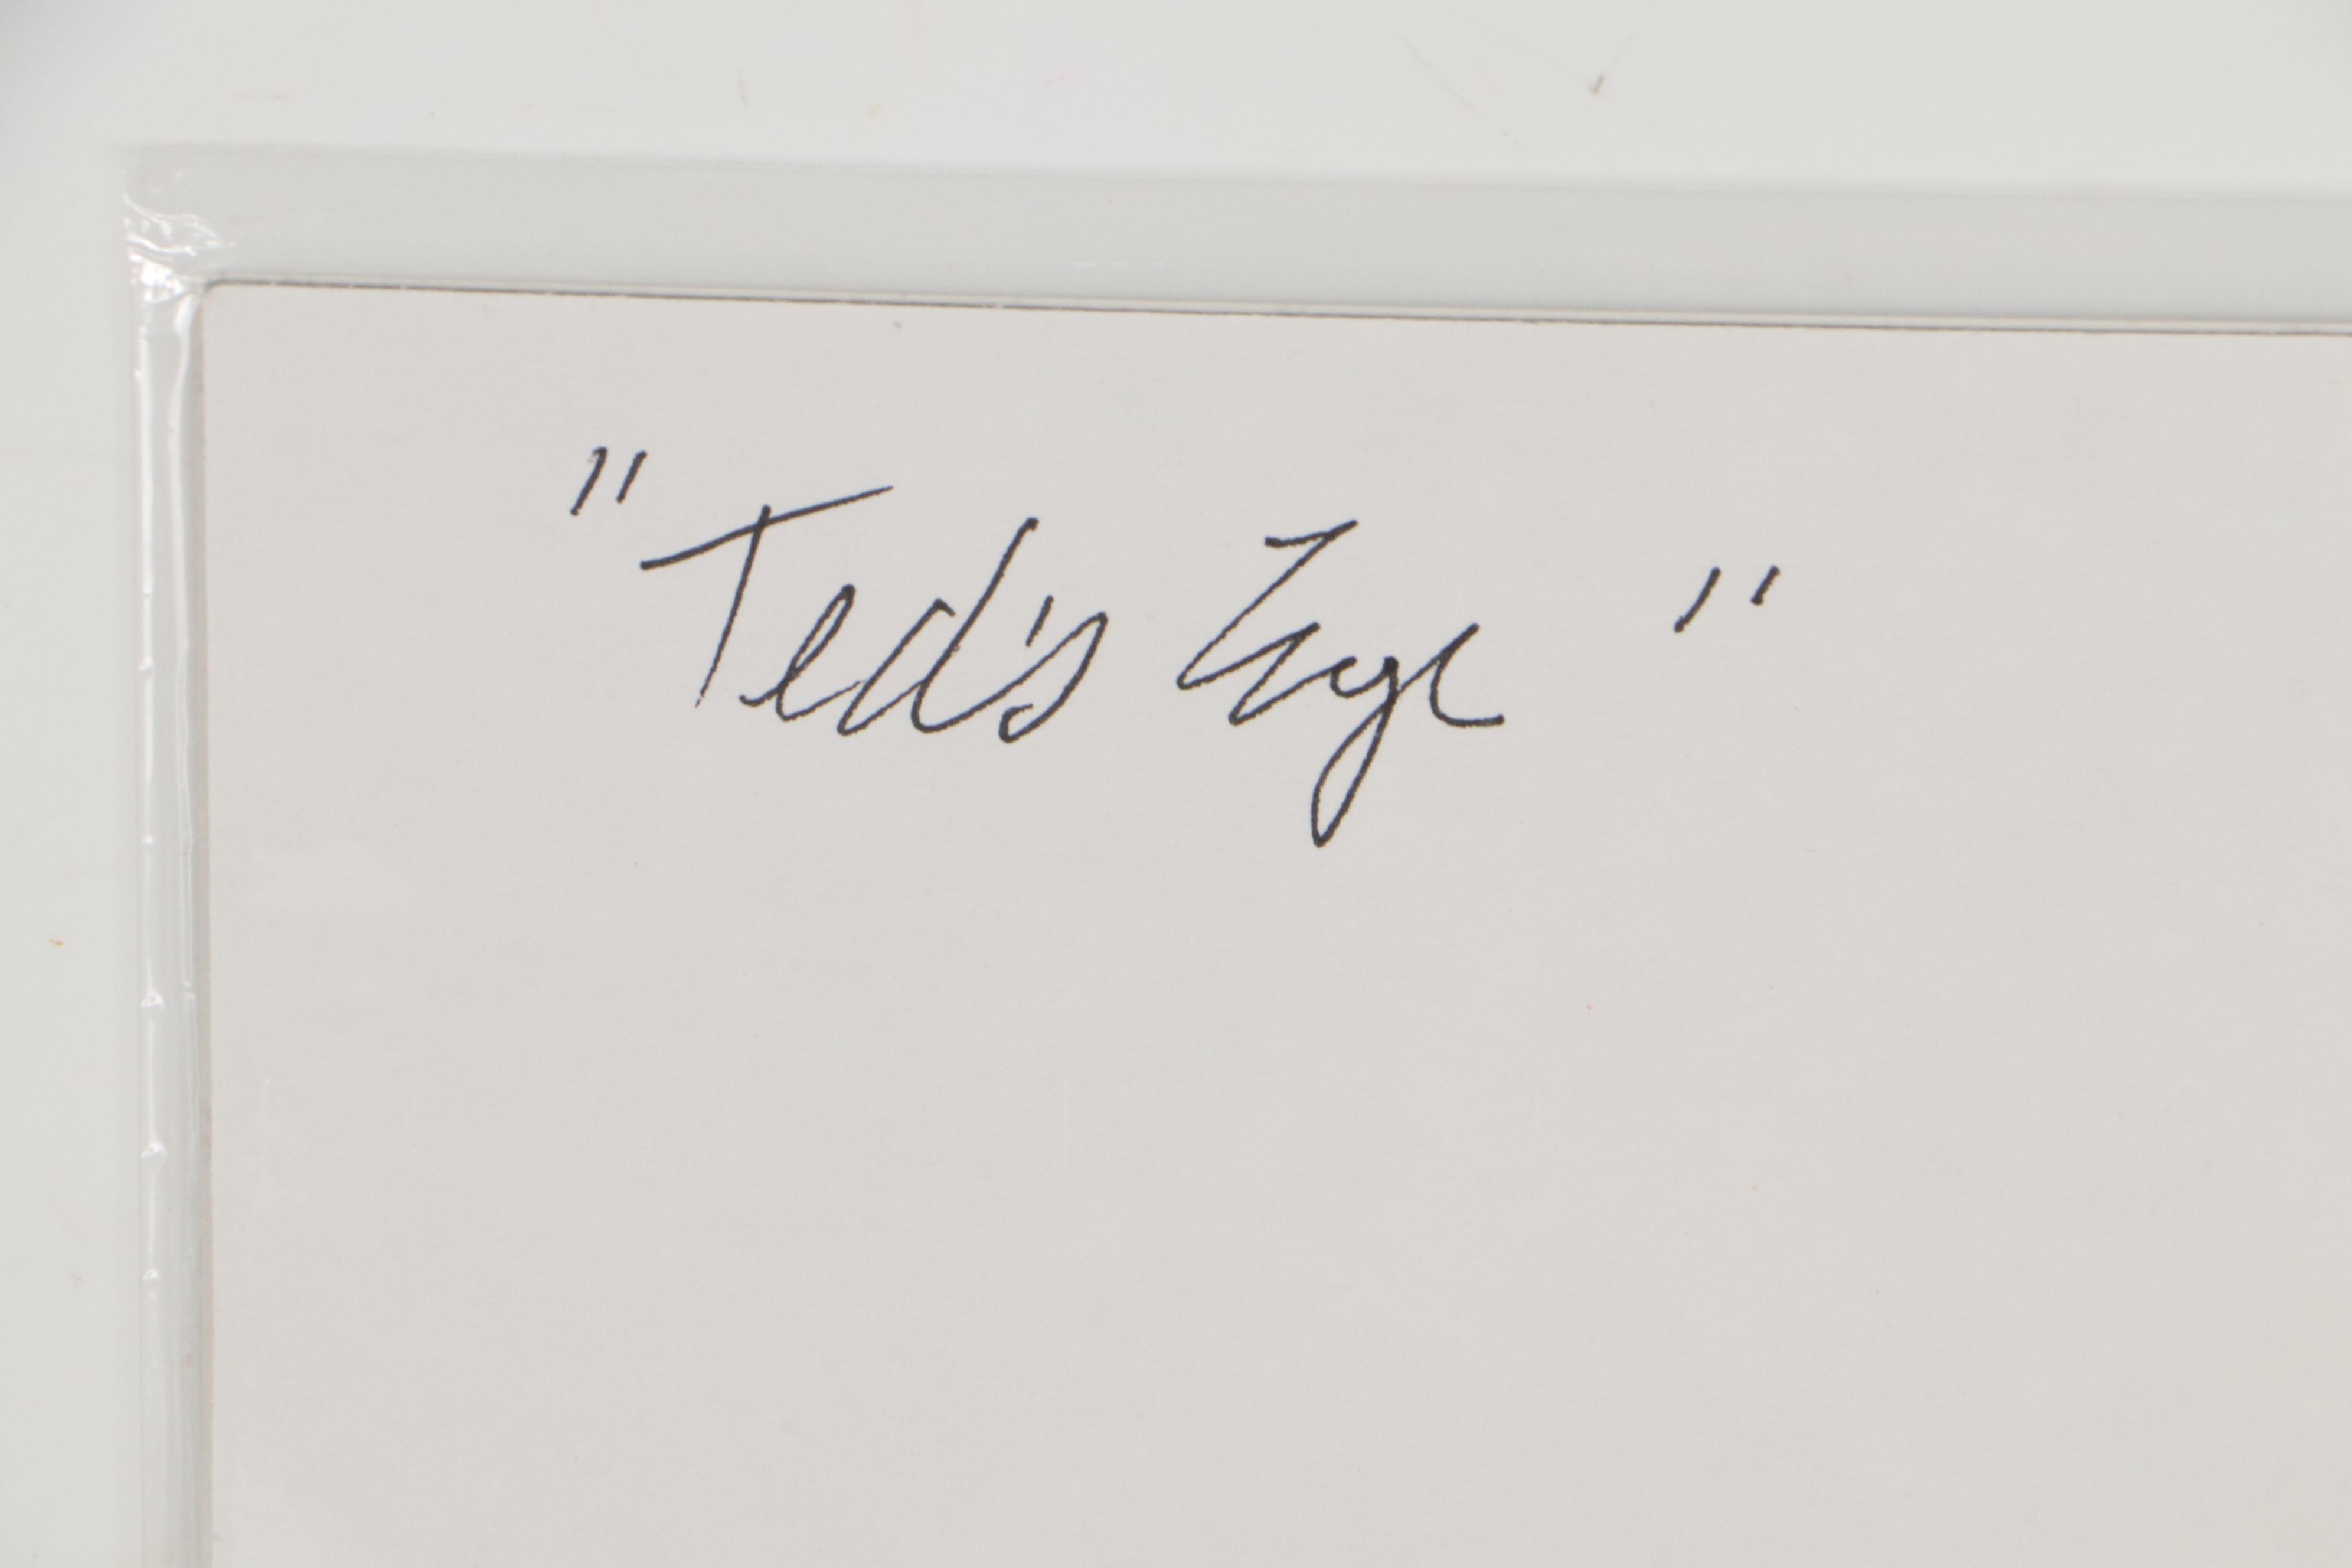 "Ted's Eye"